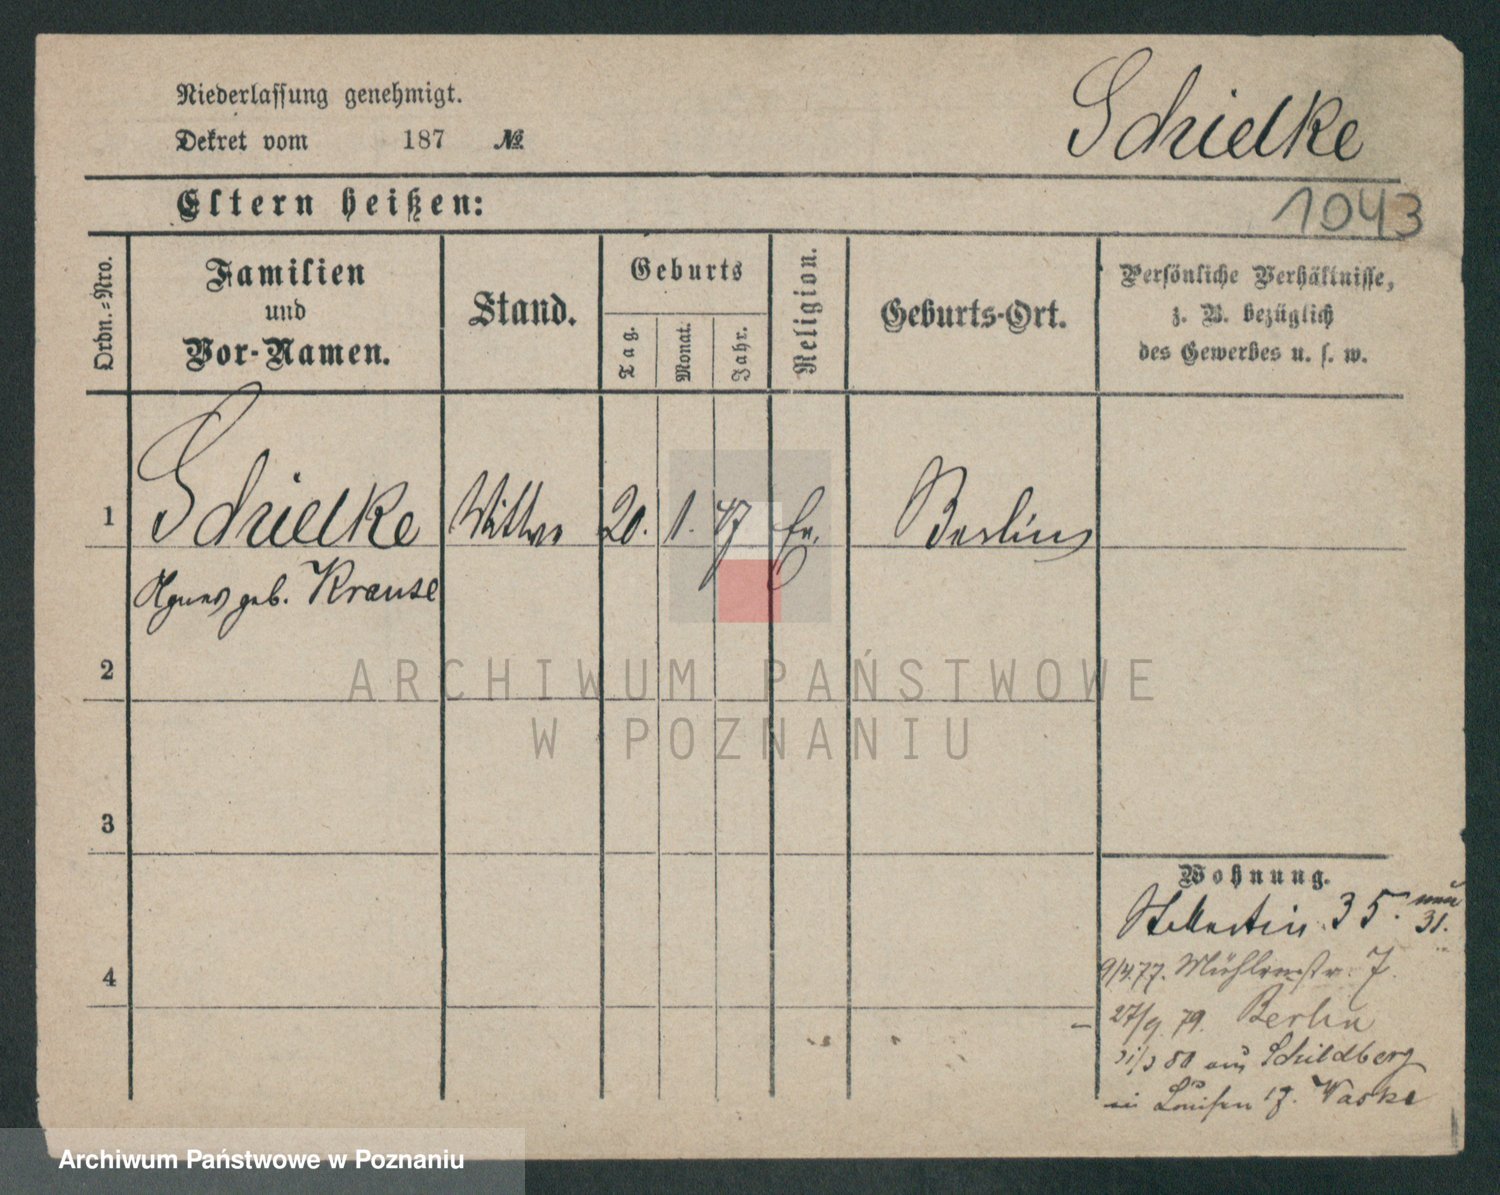 Niederlassung genehmigt.
Dekret vom 187 №
Schielke
Eltern heißen:
1043
Ordn.-Nro.
Familien
und
Vor-Namen.
Stand.
Geburts
Tag.
Monat.
Jahr.
Religion.
Geburts-Ort.
Persönliche Verhältnisse,
z. B. bezüglich
des Gewerbes u. s. w.
1 Schielke Wittwe 20. 1. 47 Ev. Berlin
Agnes geb. Krause
2
ARCHIWUM PAŃSTWOWE
W POZNANIU
3
Wohnung.
St Martin 35. neu 31.
4
9/4.77. Mühlenstr. 7.
27/9. 79. Berlin
80 aus Schildberg
in Louisen Waske
Archiwum Państwowe w Poznaniu